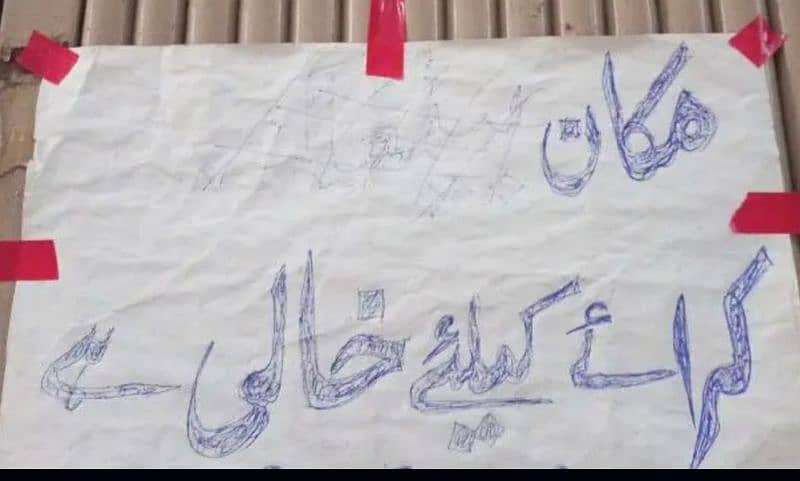 مکان
کرائے کیلئے خالی ہے